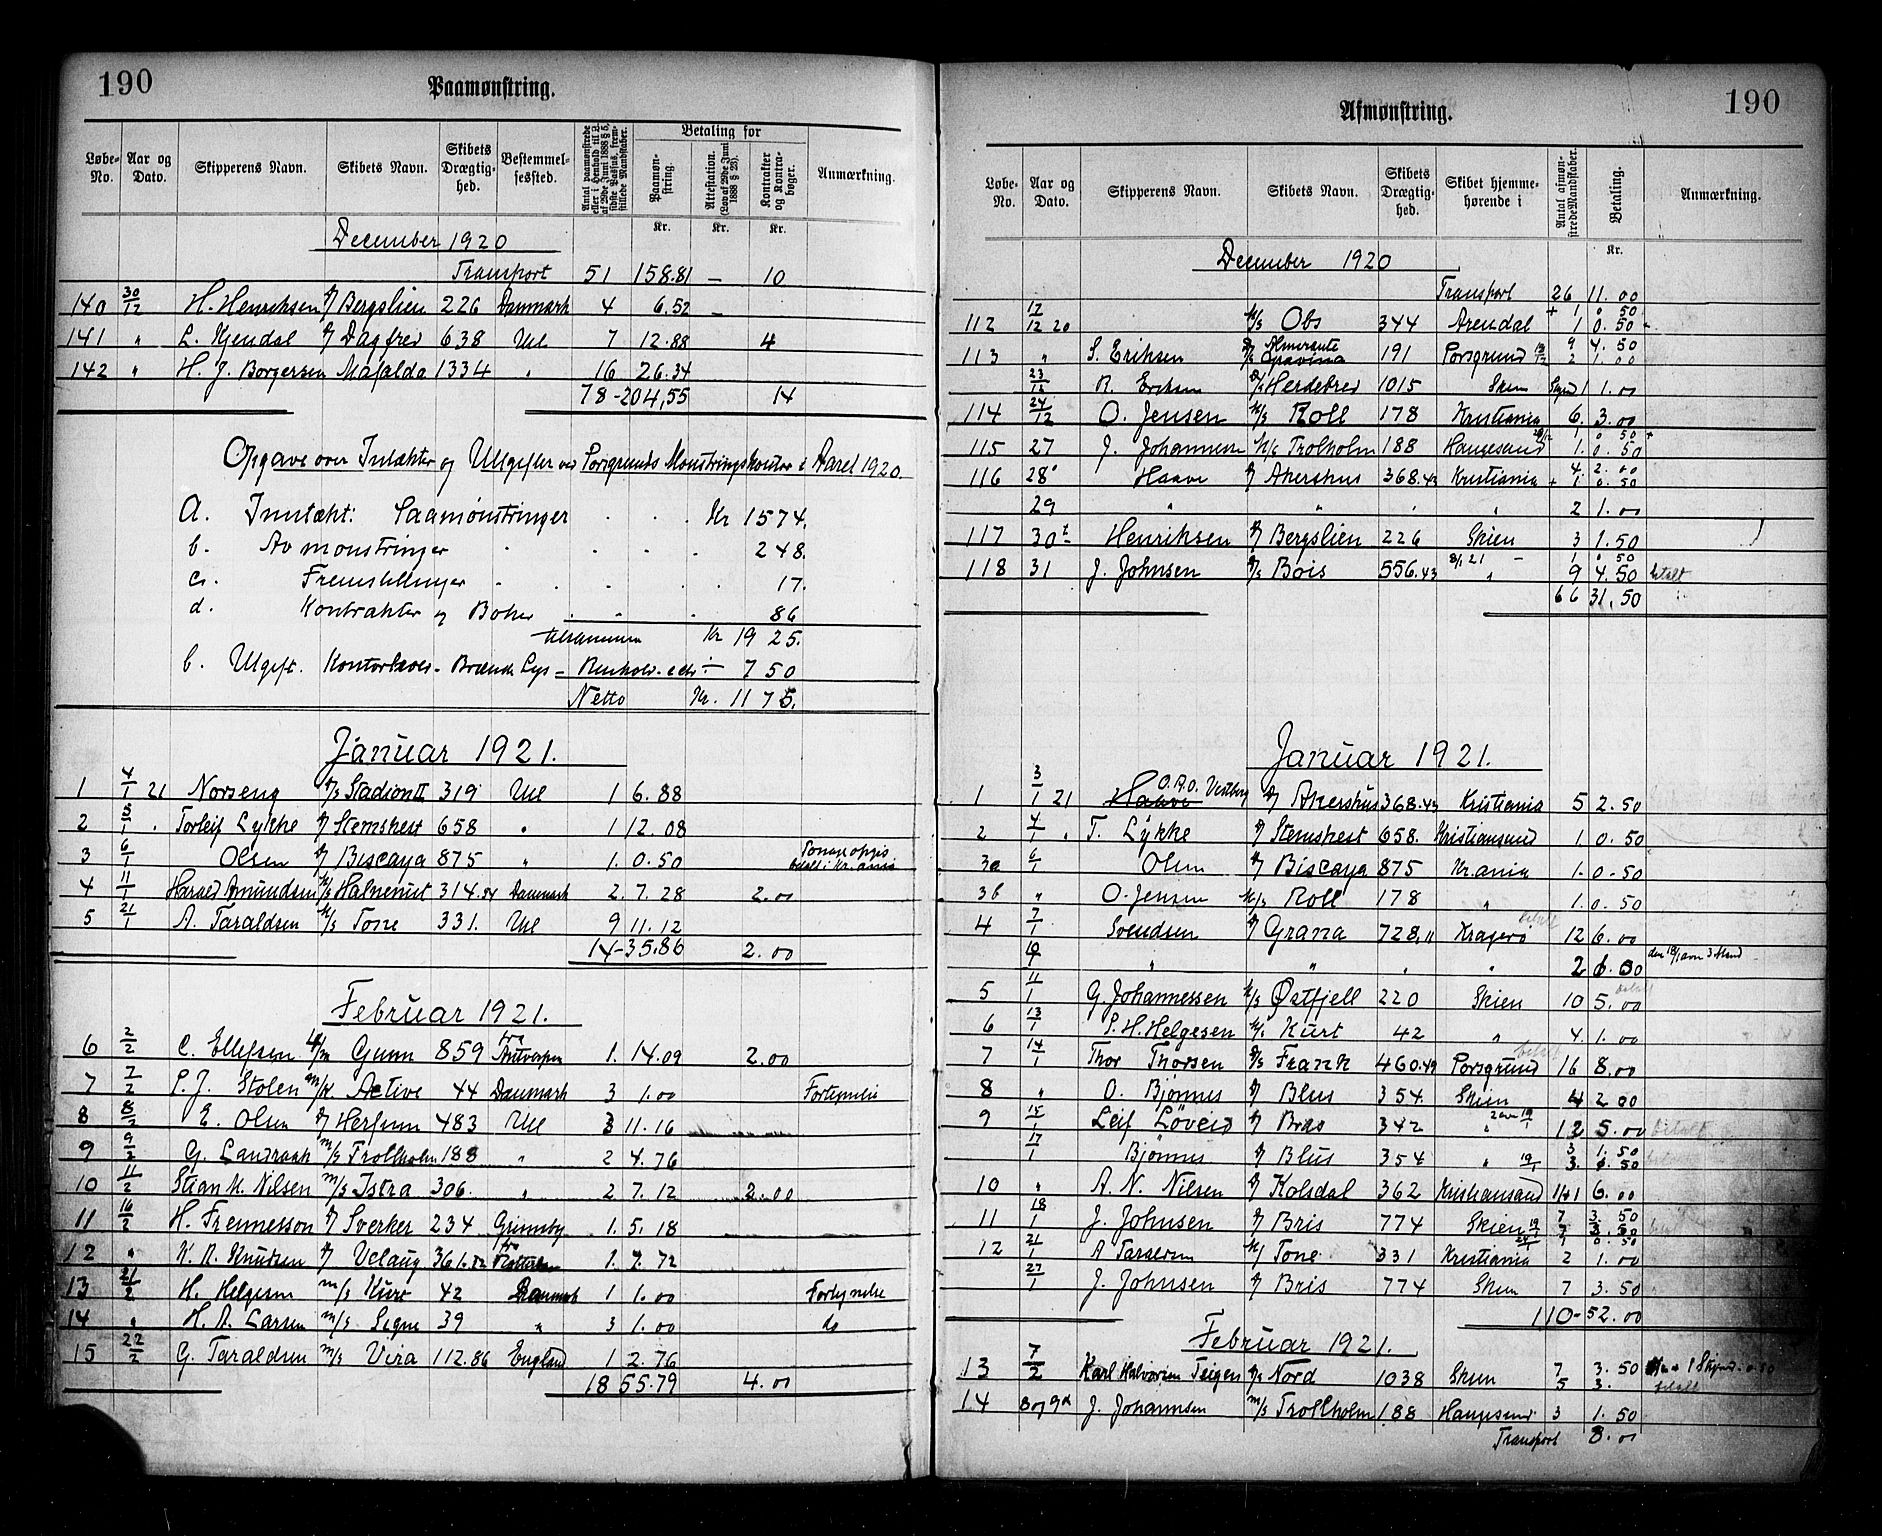 190
Paamønstring.
Løbe-No. Aar og Dato. Skipperens Navn. Skibets Navn. Skibets Drægtig-hed. Bestemmel-sessted. Antal paamønstrede eller i Henhold til L. af 29de Juni 1888 § 5, sidste Passus, frem-stillede Mandskaber. Betaling for Paamøn-string. Attestation. (Lov af 29de Juni 1888 § 28). Kontrakter og Kontra-bøger. Anmærkning.
Kr. Kr. Kr.
December 1920
Transport 51 158.81 — 10
140 30/12 H. Henriksen Bergslien 226 Danmark 4 6.52 —
141 " L. Kjendal Dagfred 638 Uel 7 12.88 4
142 " H. J. Borgersen Mafalda 1334 " 16 26.34
78 - 204,55 14
Opgave over Intækter og Utgifter ved Porsgrunds Mønstringskontor i Aaret 1920.
A. Inntækt: Paamønstringer Kr 1574.
b. Avmønstringer 248.
c. Fremstillinger 17.
d. Kontrakter og Bøker 86
tilsammen Kr 1925.
b. Utgift. Kontorhold - Brænde Lys - Renhold. etc. — 750
Netto Kr. 1175.
Januar 1921.
1 4/1 21 Norseng Stadion II 319 Uel 1 6.88
2 5/1 . Torleif Lykke Stemshest 658 " 1 12.08
3 6/1 Olsen Biscaya 875 " 1. 0.50 betalt i Kr.ania
4 11/1 Harald Amundsen M/S Halnenut 314.54 Danmark 2. 7.28 2.00
5 21/1 A. Taraldsen M/S Tone 331. Uel 9 11.12
14 - 35.86 2.00
Februar 1921.
6 2/2 C. Ellefsen 4/m Gunn 859 fra Antverpen 1. 14.09 2.00
7 7/2 P. J. Stolen m/k. Active 44 Danmark 3 1.00 Fortynelse
8 8/2 E. Olsen Herfinn 483 Uel 3 11.16
9 9/2 G. Landraak m/s Trollholm 188 " 2 4.76
10 11/2 Stian M. Nilsen m/s Istra 306 " 2 7.12 2.00
11 16/2 H. Fremmesson Sverker 234 Grimsby 1. 5.18
12 " K. A. Knudsen Velaug 361.82 fra Rotterdam 1. 7.72
13 21/2 H. Helgesen m/s Kurt 42 Danmark 1 1.00 Fortynelse
14 " H. A. Larsen m/s Signe 39 " 3 1.00 do
15 22/2 G. Taraldsen m/s Vira 112.86 England 1 2.76
18 55.79 4.00
190
Afmønstring.
Løbe-No. Aar og Dato. Skipperens Navn. Skibets Navn. Skibets Drægtig-hed. Skibet hjemme-hørende i Antal afmøn-strede Mandskaber. Betaling. Anmærkning.
Kr.
December 1920
Transport 26 11.00
+ 1 0 50
112 17/12 20 M/S Obs 344 Arendal 1 0.50
113 " S. Eriksen Almirante Gravina 191 Porsgrund 9 4.50 2 1.00
23/12 R. Eriksen Herdebred 1015 Skien 1 1.00
114 24/12 O. Jensen M/S Roll 178 Kristiania 6. 3.00
115 27 J. Johannesen M/S Trolholm 188 Haugesund 1. 0 50 + 1. 0.50
116 28 Haave Akershus 368.43 Kristiania 4. 2.00 + 1 0.50
29 " " " " 2 1.00
117 30t Henriksen Bergslien 226 Skien 3 1.50
118 31 J. Johnsen Bois 556.43 8/1 21 " 1 0 50 9 4.50 betalt
66 31.50
Januar 1921.
1 3/1 21 Haave O.A.O. Vestberg Akershus 368.43 Kristiania 5 2.50
2 4/1 T. Lykke Stemshest 658. Kristiansund 1. 0.50
3a 6/1 Olsen Biscaya 875 Kr.ania 1. 0.50
3b " O. Jensen M/S Roll 178 " 1. 0.50
4 7/1 Svendsen Grana 728,11 Kragerø 12 6.00 betalt
" " " " 2 den 18/1 avm 3 Mand
5 11/1 G. Johannessen M/S Østfjell 220 Skien 10 5.00 betalt
6 13/1 P. H. Helgesen M/S Kurt 42 " 4. 1.00
7 14/1 Thor Thorsen Frank 460.49 Porsgrund 16 8.00 betalt
8 " O. Bjønnes Blus 354. Skien 4 2.00
9 15/1 Leif Løveid Bras 342 " 12 5.00 betalt
17/1 Bjønnes Blus 354 " 19/1 3 1.50
10 " A. N. Nilsen Kolsdal 362 Kristiansand 6.00
11 18/1 J. Johnsen Bris 774 Skien 7 3.50
12 21/1 A Taraldsen M/ Tone 331 Kristiania 2 1.00
27/1 J. Johnsen Bris 774 Skien 7 3.50
110 - 52.00
Februar 1921.
13 7/2 Karl Halvorsen Teigen Nord 1038 Skien 7 3.50 5 3. betalt
14 8 og 9d J. Johannsen m/s Trollholm 188 Haugesund 3 1.50
Transport 8.00